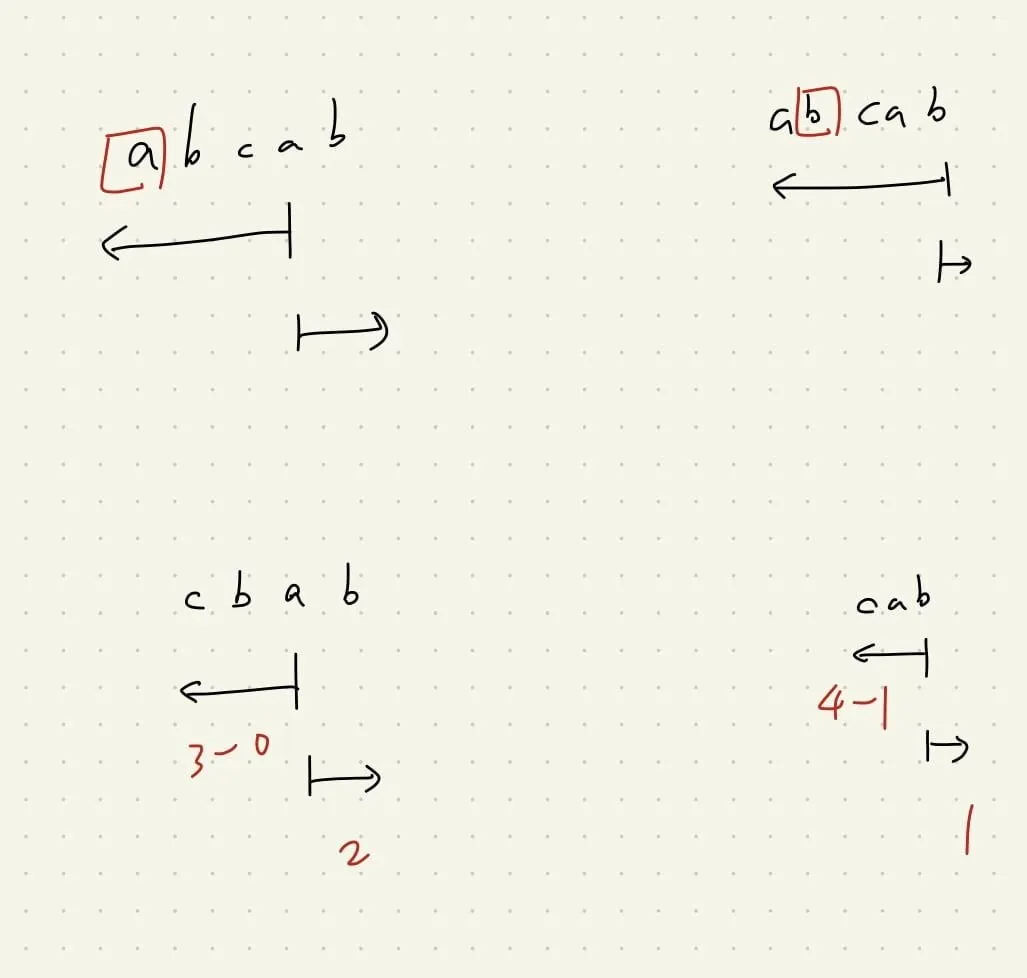 a b c a b
a b c a b
c b a b
3-0
2
c a b
4-1
1